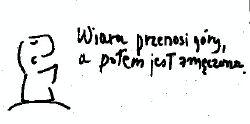 Wiara przenosi góry,
a potem jest zmęczona.